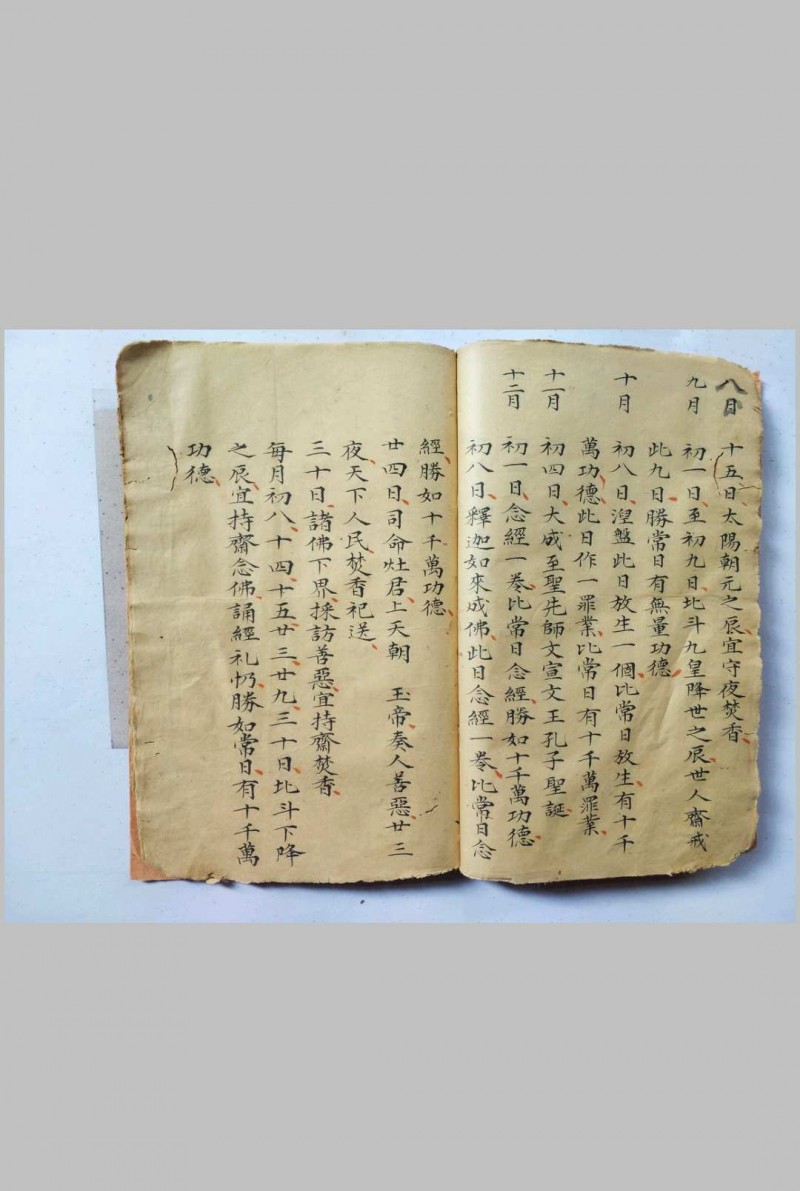 八月 十五日、太陽朝元之辰、宜守夜焚香、
九月 初一日、至初九日、北斗九皇降世之辰、世人齋戒
此九日、勝常日有無量功德、
十月 初八日、湼盤此日放生一個、比常日放生、有十千
萬功德、此日作一罪業、比常日有十千萬罪業、
十一月 初四日、大成至聖先師文宣文王孔子聖誕、
十二月 初一日、念經一卷、比常日念經、勝如十千萬功德、
初八日、釋迦如來成佛、此日念經一卷、比常日念
經、勝如十千萬功德、
廿四日、司命灶君、上天朝 玉帝、奏人善惡、廿三
夜、天下人民、焚香祀送、
三十日、諸佛下界、採訪善惡、宜持齋焚香、
每月初八、十四、十五、廿三、廿九、三十日、北斗下降
之辰、宜持齋念佛、誦經礼忏、勝如常日、有十千萬
功德、